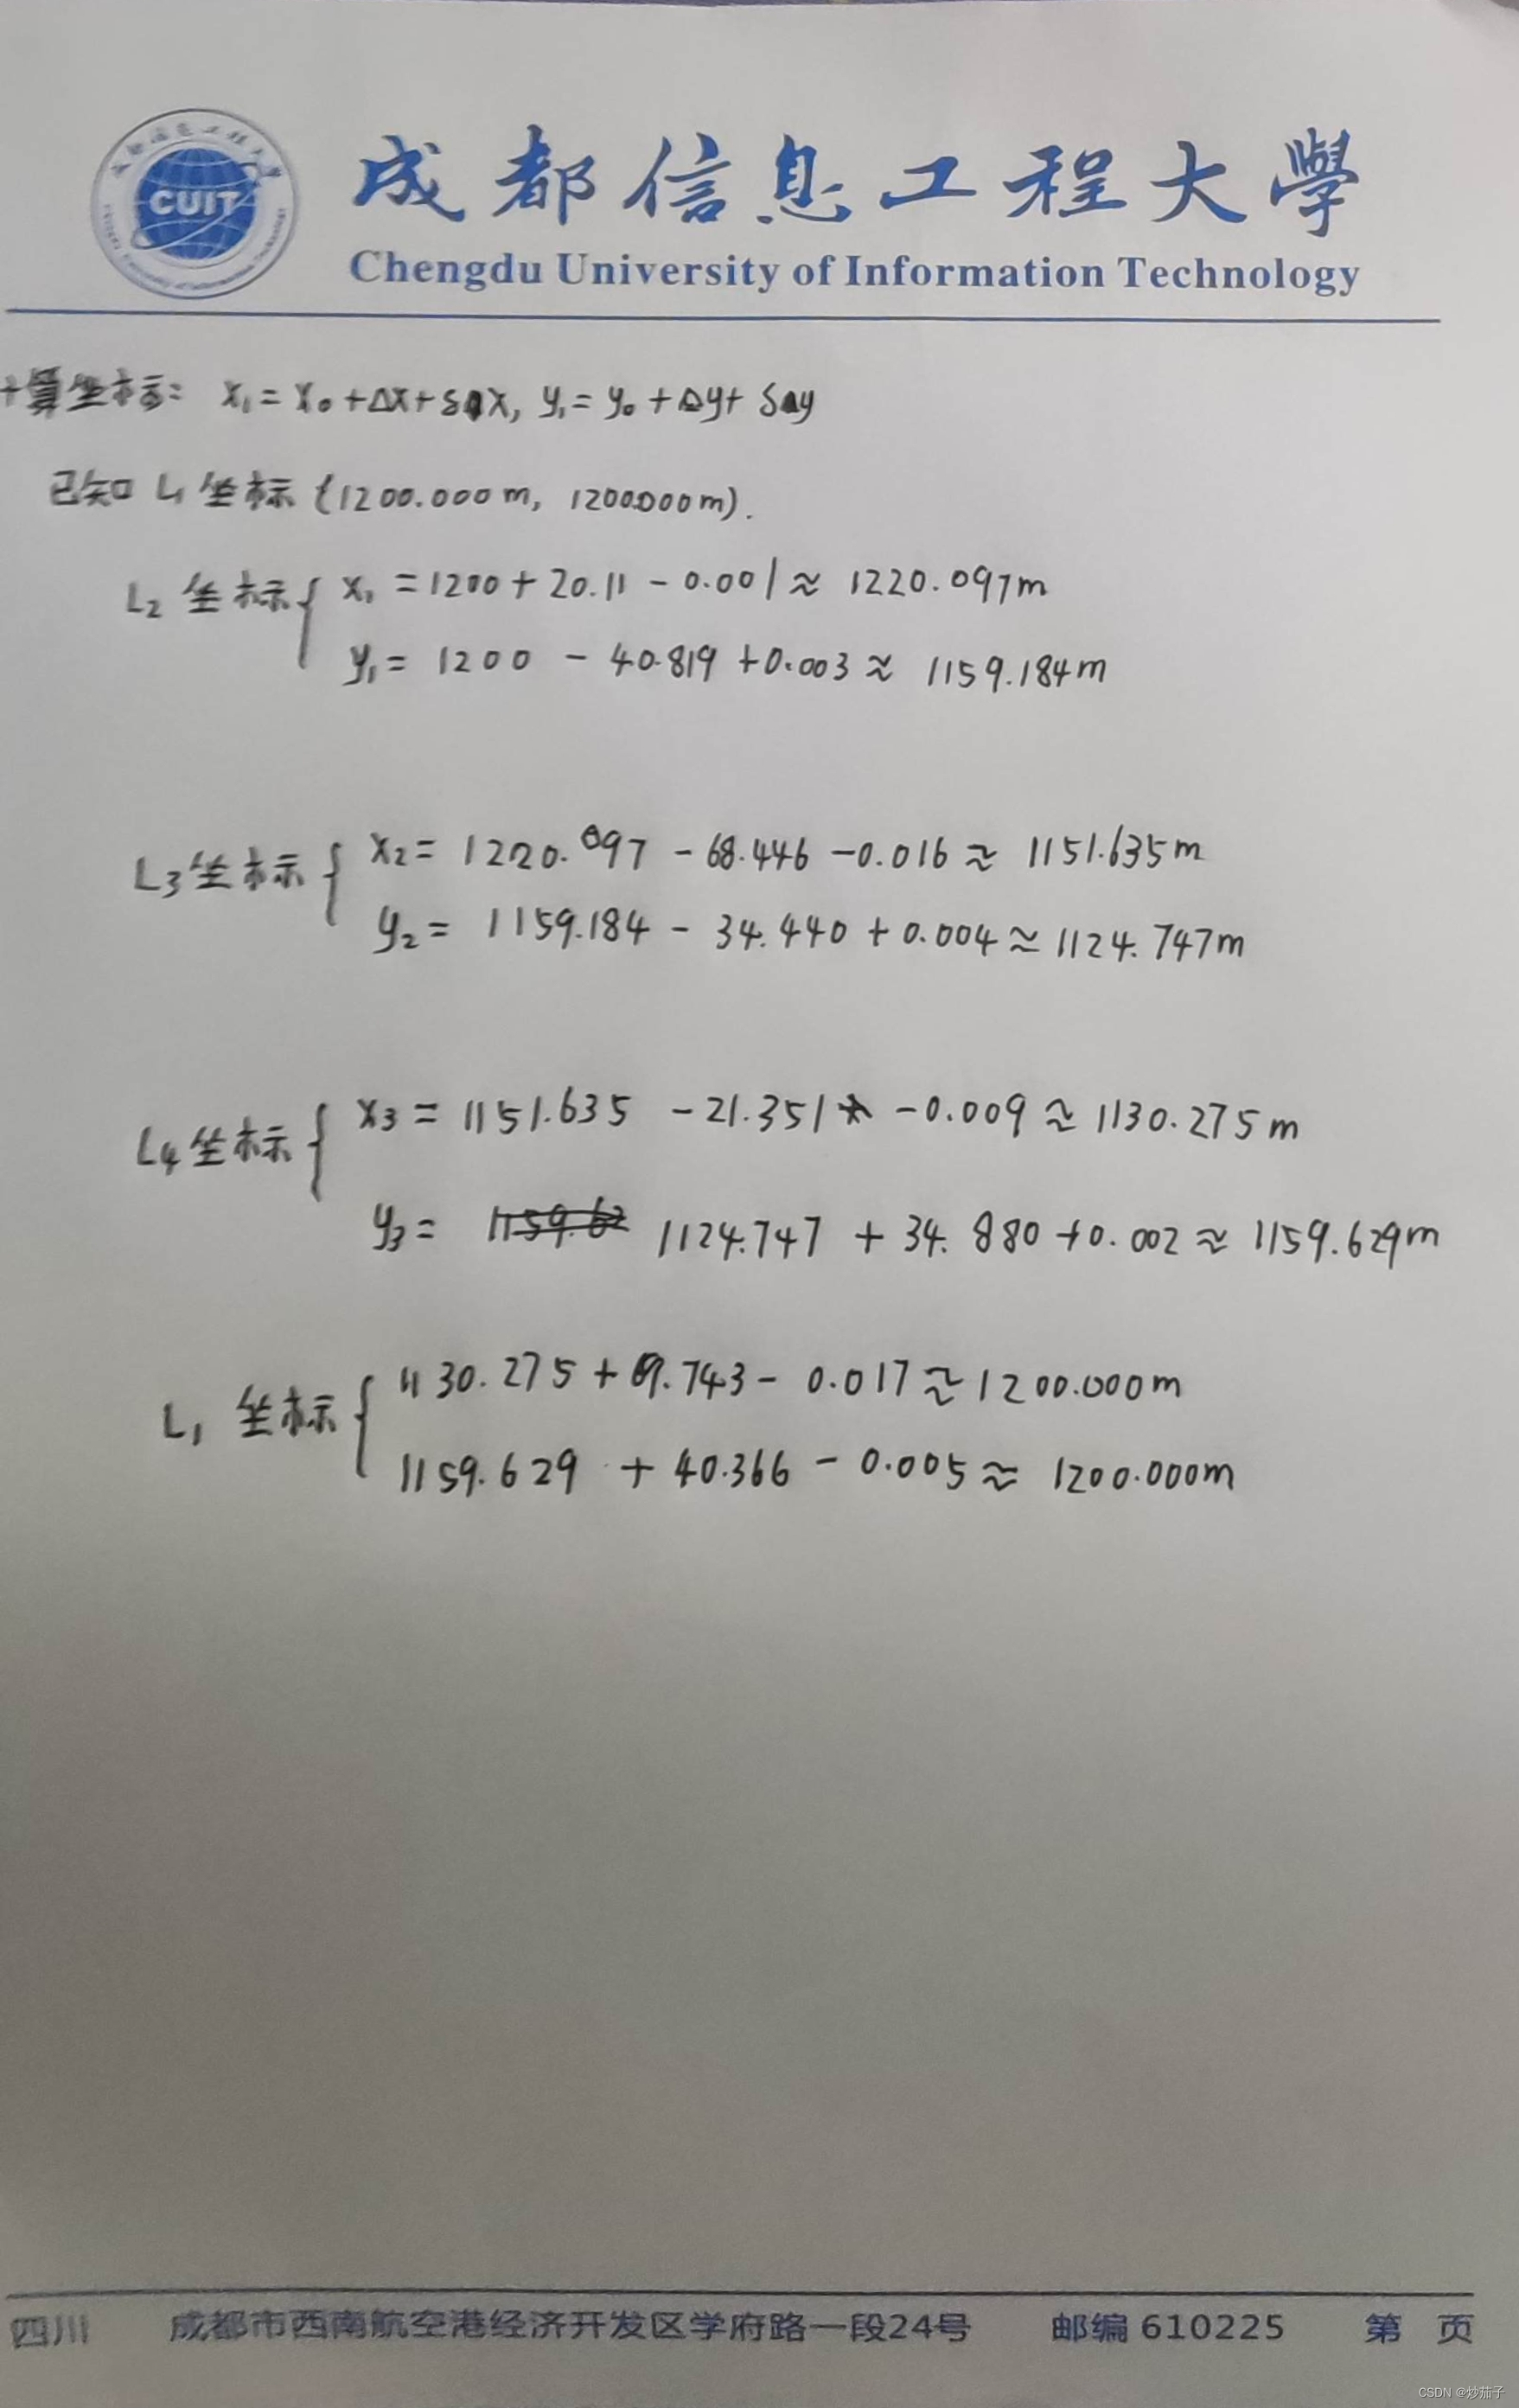 CUIT
成都信息工程大學
Chengdu University of Information Technology
算坐标: x₁=x₀+Δx+δΔx, y₁=y₀+Δy+δΔy
已知 L₁ 坐标 (1200.000m, 1200.000m).
L₂ 坐标{ x₁ =1200+20.11-0.001≈1220.097m
y₁= 1200 - 40.819 +0.003≈ 1159.184m
L₃坐标{ x₂= 1220.097 -68.446 -0.016≈ 1151.635m
y₂= 1159.184 - 34.440 +0.004≈1124.747m
L₄坐标{ x₃ = 1151.635 -21.351 -0.009≈1130.275m
y₃= 1124.747 + 34.880 +0.002≈1159.629m
L₁ 坐标{ 1130.275+69.743- 0.017≈1200.000m
1159.629 + 40.366 - 0.005≈ 1200.000m
四川 成都市西南航空港经济开发区学府路一段24号 邮编 610225 第 页
CSDN @炒茄子